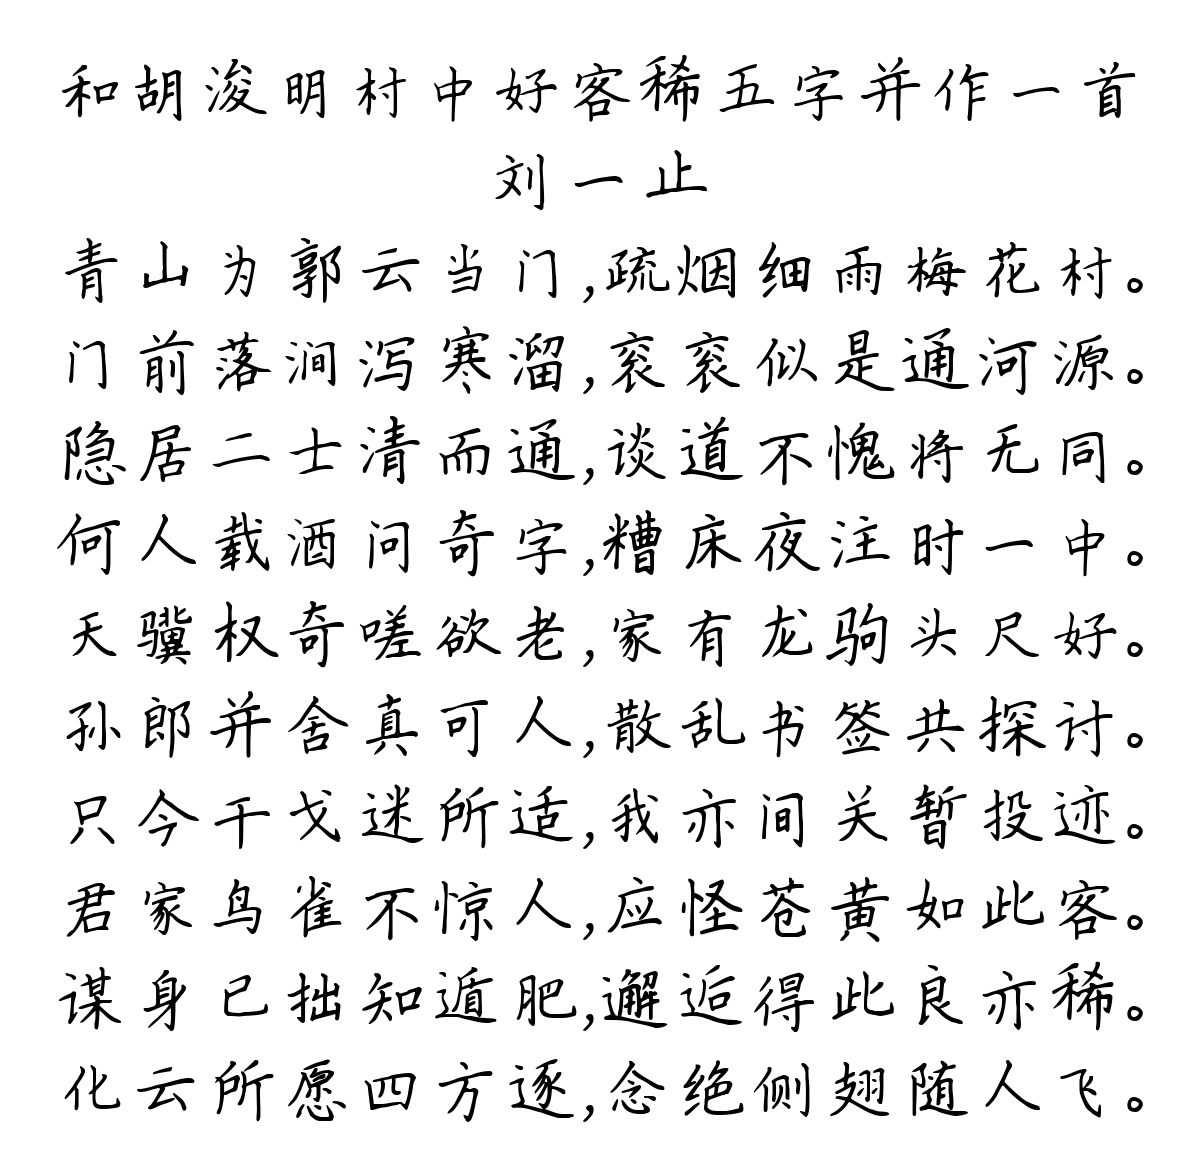 和胡浚明村中好客稀五字并作一首
刘一止
青山为郭云当门,疏烟细雨梅花村。
门前落涧泻寒溜,衮衮似是通河源。
隐居二士清而通,谈道不愧将无同。
何人载酒问奇字,糟床夜注时一中。
天骥权奇嗟欲老,家有龙驹头尺好。
孙郎并舍真可人,散乱书签共探讨。
只今干戈迷所适,我亦间关暂投迹。
君家鸟雀不惊人,应怪苍黄如此客。
谋身已拙知遁肥,邂逅得此良亦稀。
化云所愿四方逐,念绝侧翅随人飞。